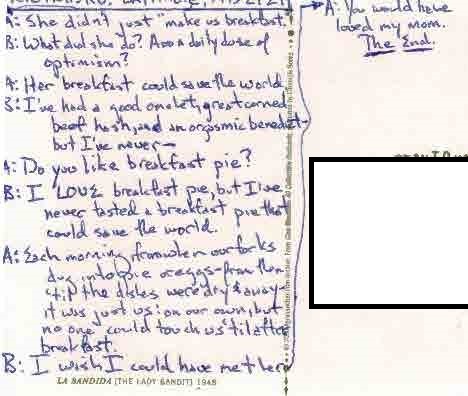 A: She didn't just "make us breakfast.
B: What did she do? Add a daily dose of
optimism?
A: Her breakfast could save the world
B: I've had a good omelet, great corned
beef hash, and an orgasmic benedict-
but I've never—
A: Do you like breakfast pie?
B: I LOVE breakfast pie, but I've
never tasted a breakfast pie that
could save the world.
A: Each morning, from when our forks
dug into pie or eggs-from then
'til the dishes were dry & away-
it was just us: on our own, but
no one could touch us 'til after
breakfast.
B: I wish I could have met her
LA BANDIDA [THE LADY BANDIT] 1948
A: You would have
loved my mom.
The End.